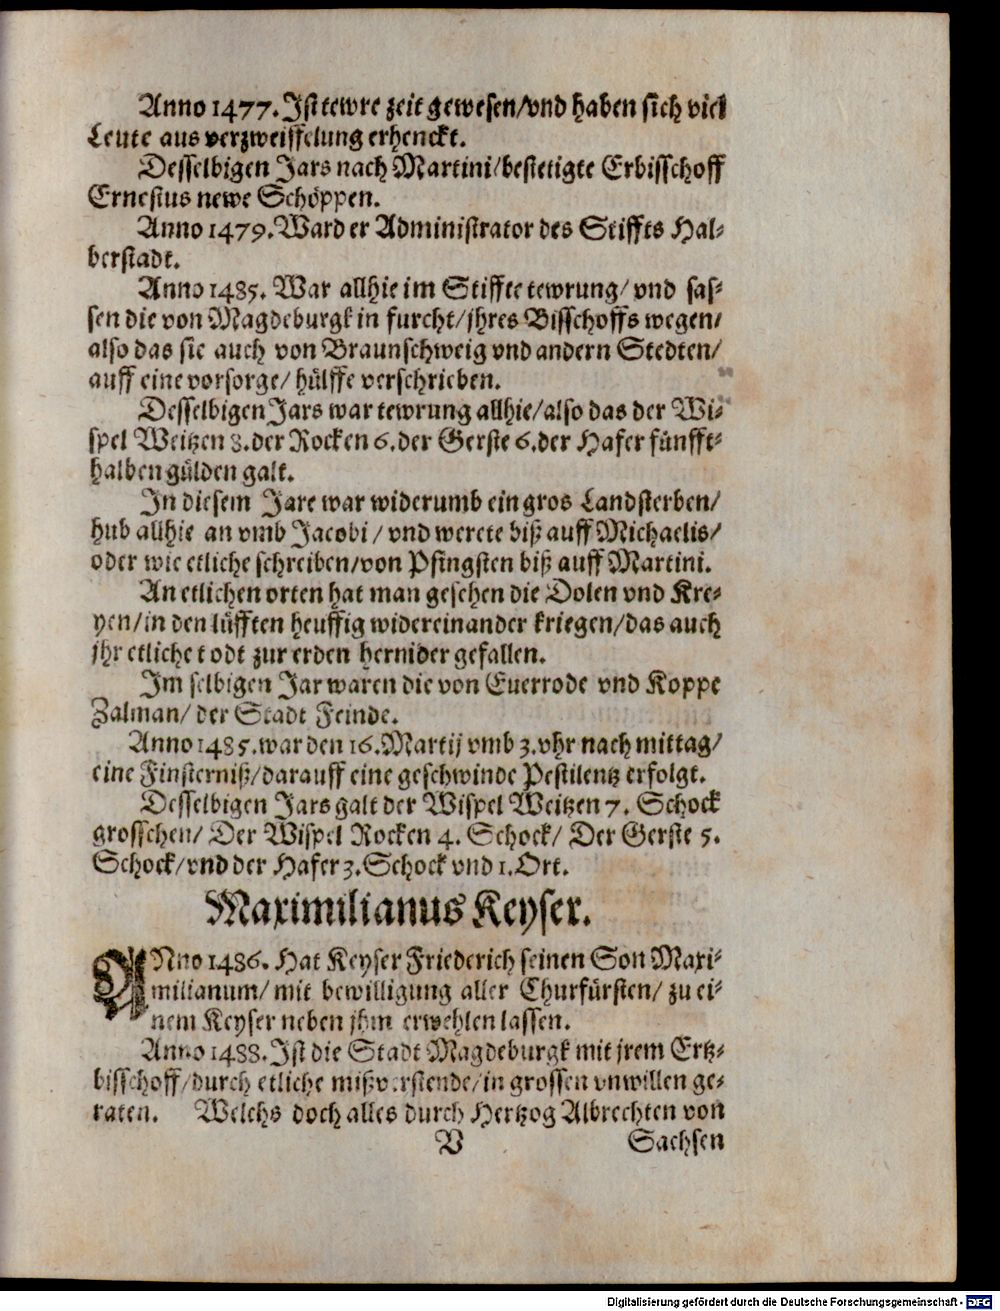 Anno 1477. Ist tewre zeit gewesen/vnd haben sich viel
Leute aus verzweiffelung erhenckt.
Desselbigen Jars nach Martini/bestetigte Erbisschoff
Ernestus newe Schöppen.
Anno 1479. Ward er Administrator des Stiffts Hal⸗
berstadt.
Anno 1485. War allhie im Stiffte tewrung/ vnd sas⸗
sen die von Magdeburgk in furcht/jhres Bisschoffs wegen/
also das sie auch von Braunschweig vnd andern Stedten/
auff eine vorsorge/ hülffe verschrieben.
Desselbigen Jars war tewrung allhie/also das der Wi⸗
spel Weitzen 8. der Rocken 6. der Gerste 6. der Hafer fünfft⸗
halben gülden galt.
In diesem Jare war widerumb ein gros Landsterben/
hub allhie an vmb Jacobi / vnd werete biß auff Michaelis/
oder wie etliche schreiben/von Pfingsten biß auff Martini.
An etlichen orten hat man gesehen die Dolen vnd Kre⸗
yen/in den lüfften heuffig widereinander kriegen/das auch
jhr etliche todt zur erden hernider gefallen.
Im selbigen Jar waren die von Euerrode vnd Koppe
Zalman/ der Stadt Feinde.
Anno 1485. war den 16. Martij vmb 3. vhr nach mittag/
eine Finsterniß/darauff eine geschwinde Pestilentz erfolgt.
Desselbigen Jars galt der Wispel Weitzen 7. Schock
grosschen/ Der Wispel Rocken 4. Schock/ Der Gerste 5.
Schock/vnd der Hafer 3. Schock vnd 1. Ort.
Maximilianus Keyser.
ANno 1486. Hat Keyser Friederich seinen Son Maxi⸗
milianum/ mit bewilligung aller Churfürsten/ zu ei⸗
nem Keyser neben jhm erwehlen lassen.
Anno 1488. Ist die Stadt Magdeburgk mit jrem Ertz⸗
bisschoff/durch etliche mißverstende/in grossen vnwillen ge⸗
raten. Welchs doch alles durch Hertzog Albrechten von
V Sachsen
Digitalisierung gefördert durch die Deutsche Forschungsgemeinschaft - DFG